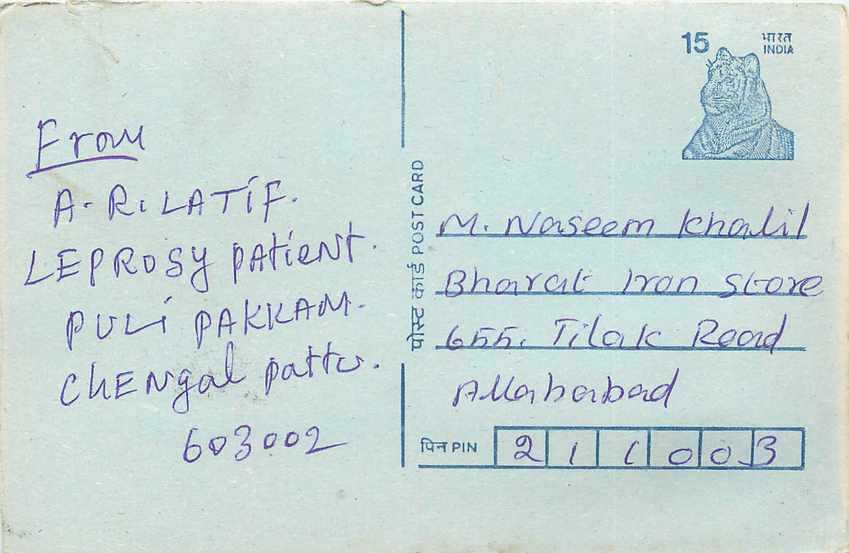 15
भारत
INDIA
From
A. R. LATIF.
LEPROSY patient.
PULI PAKKAM.
CHENgal pattu.
603002
पोस्ट कार्ड POST CARD
M. Naseem Khalil
Bharat Iron Store
655, Tilak Road
Allahabad
पिन PIN 211003